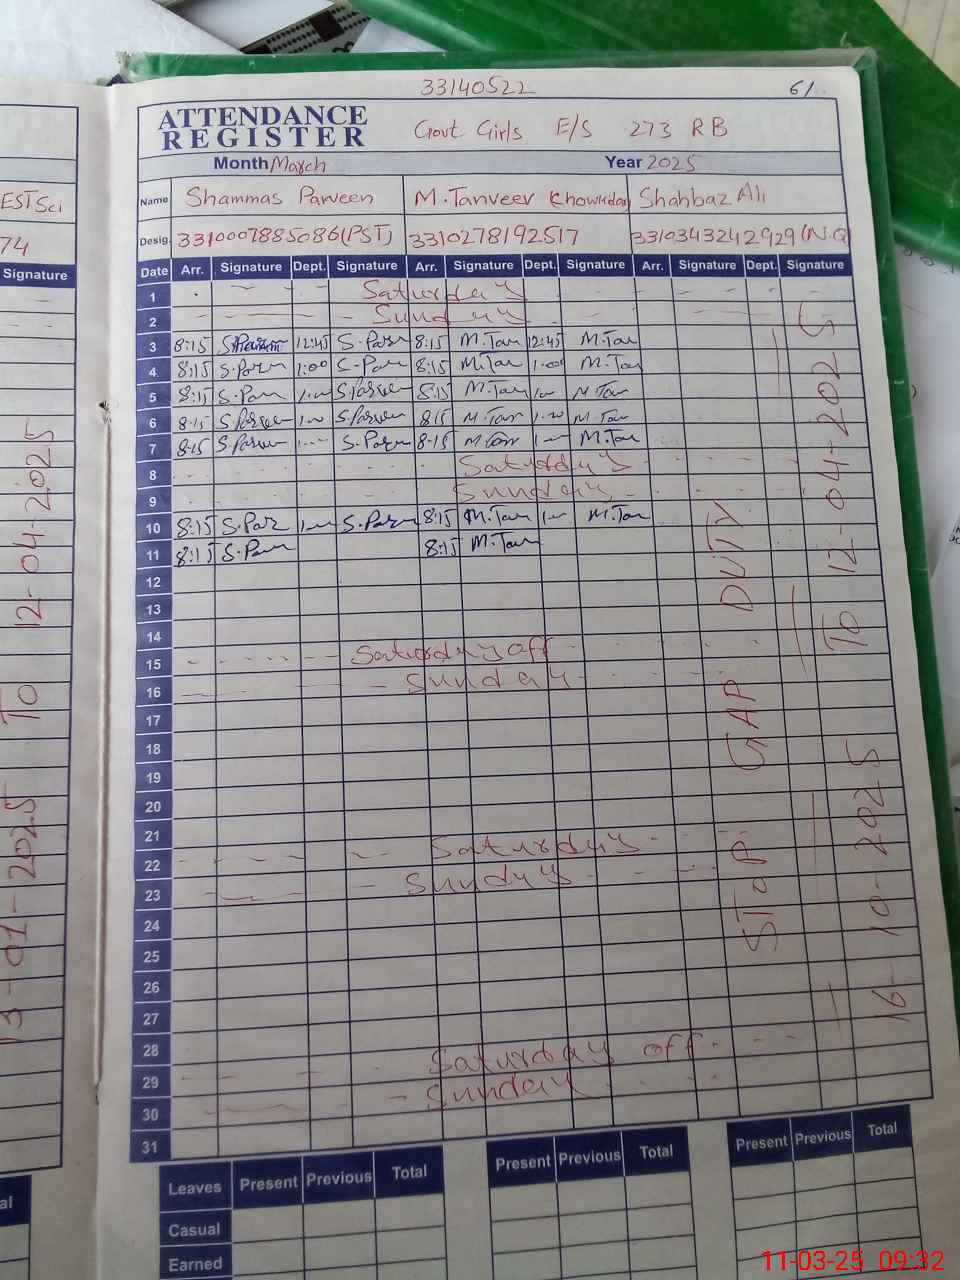 33140522
6/
ATTENDANCE
REGISTER
Govt Girls E/S 273 RB
Month March Year 2025
Name Shammas Parveen M. Tanveer Shahbaz Ali
Desig. 3310007885086 (PST) 3310278192517 3310343242929 (N.Q)
Date Arr. Signature Dept. Signature Arr. Signature Dept. Signature Arr. Signature Dept. Signature
1 Saturday
2 Sunday
3 8:15 12:45 S. Parv 8:15 M. Tan 12:45 M. Tan
4 8:15 S. Parv 1:00 S. Parv 8:15 M. Tan 1:00 M. Tan
5 8:15 S. Parv S. Parveen 8:15 M. Tan M. Tan
6 8-15 S. Parveen S. Parveen 8:15 M. Tan M. Tan
7 8-15 S. Parveen S. Parv 8-15 M. Tan M. Tan
8 Saturday
9 Sunday
10 8:15 S. Par S. Parv 8:15 M. Tan M. Tan
11 8:15 S. Parv 8:15 M. Tan
12
13
14
15 Saturday off
16 Sunday
17
18
19
20
21
22 Saturday
23 Sunday
24
25
26
27
28
29 Saturday off
30 Sunday
31
STOP GAP DUTY
16-10-2025 TO 12 04-2025
Leaves Present Previous Total Present Previous Total Present Previous Total
Casual
Earned
EST Sci
74
Signature
13-01-2025 TO 12-04-2025
al
11-03-25 09:32